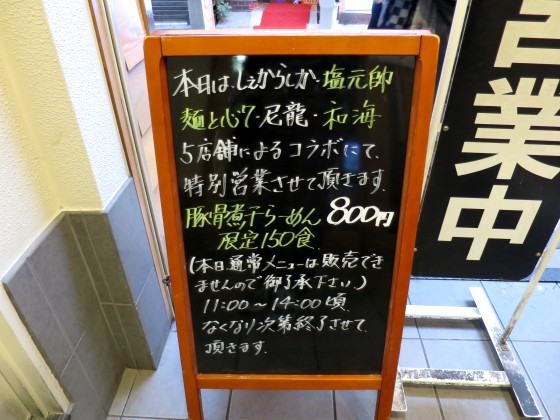 本日は、しぇからしか・塩元帥
麺と心7・尼龍・和海
5店舗によるコラボにて、
特別営業させて頂きます。
豚骨煮干らーめん 800円
限定150食
(本日通常メニューは販売でき
ませんので御了承下さい。)
11:00～14:00頃
なくなり次第終了させて
頂きます。
営業中